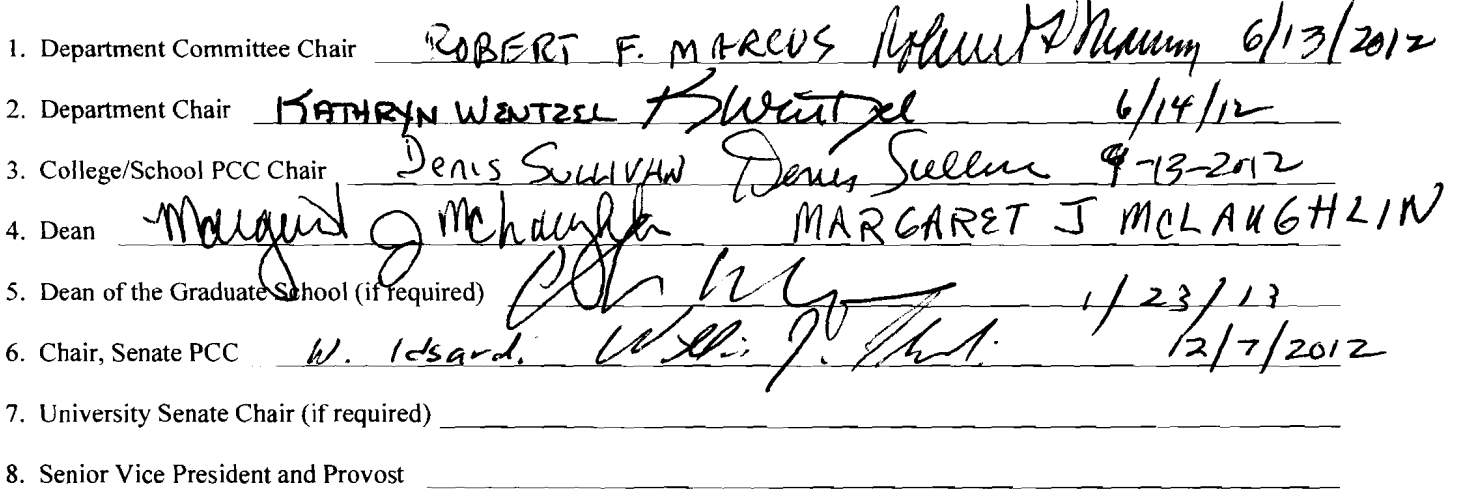 1. Department Committee Chair ROBERT F. MARCUS 6/13/2012
2. Department Chair KATHRYN WENTZEL KWentzel 6/14/12
3. College/School PCC Chair Denis SULLIVAN Denis Sullivan 9-13-2012
4. Dean Margaret J McLaughlin MARGARET J MCLAUGHLIN
5. Dean of the Graduate School (if required) 1/23/13
6. Chair, Senate PCC W. Idsardi 12/7/2012
7. University Senate Chair (if required)
8. Senior Vice President and Provost